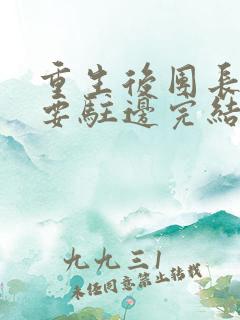 重生後團長
要駐邊完結
九九三1
未经同意禁止转载